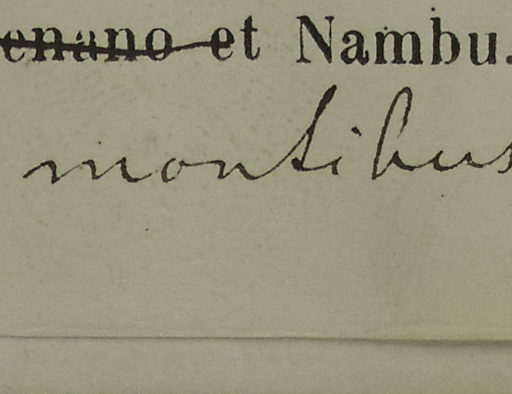 enano et Nambu.
montibus